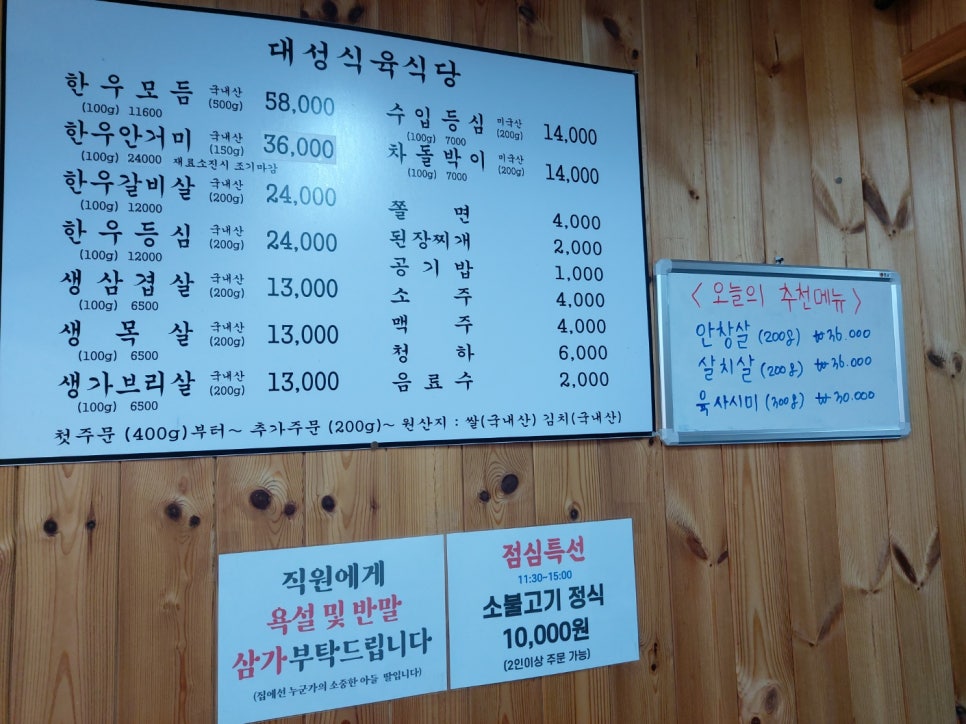 대성식육식당
한우모듬 국내산 (500g) 58,000
(100g) 11600
한우안거미 국내산 (150g) 36,000
(100g) 24000 재료소진시 조기마감
한우갈비살 국내산 (200g) 24,000
(100g) 12000
한우등심 국내산 (200g) 24,000
(100g) 12000
생삼겹살 국내산 (200g) 13,000
(100g) 6500
생목살 국내산 (200g) 13,000
(100g) 6500
생가브리살 국내산 (200g) 13,000
(100g) 6500
수입등심 미국산 (200g) 14,000
(100g) 7000
차돌박이 미국산 (200g) 14,000
(100g) 7000
쫄면 4,000
된장찌개 2,000
공기밥 1,000
소주 4,000
맥주 4,000
청하 6,000
음료수 2,000
첫주문 (400g)부터~ 추가주문 (200g)~ 원산지 : 쌀(국내산) 김치(국내산)
<오늘의 추천메뉴>
안창살 (200g) ₩36.000
살치살 (200g) ₩36.000
육사시미 (300g) ₩30.000
직원에게
욕설 및 반말
삼가부탁드립니다
(집에선 누군가의 소중한 아들 딸입니다)
점심특선
11:30~15:00
소불고기 정식
10,000원
(2인이상 주문 가능)